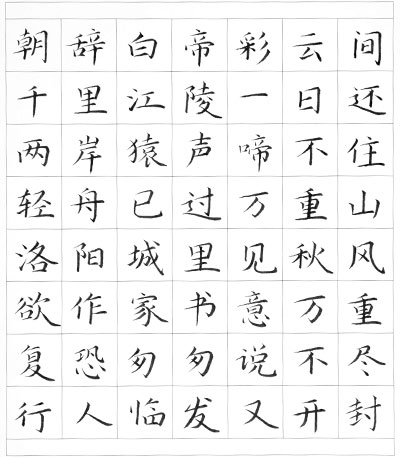 朝辞白帝彩云间
千里江陵一日还
两岸猿声啼不住
轻舟已过万重山
洛阳城里见秋风
欲作家书意万重
复恐匆匆说不尽
行人临发又开封